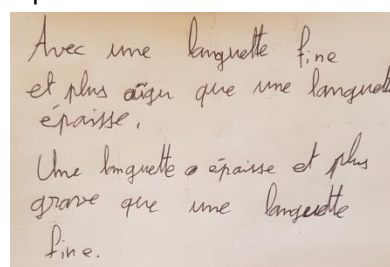 Avec une languette fine
et plus aïgu que une languett
épaisse.
Une languette épaisse et plus
grave que une languette
fine.